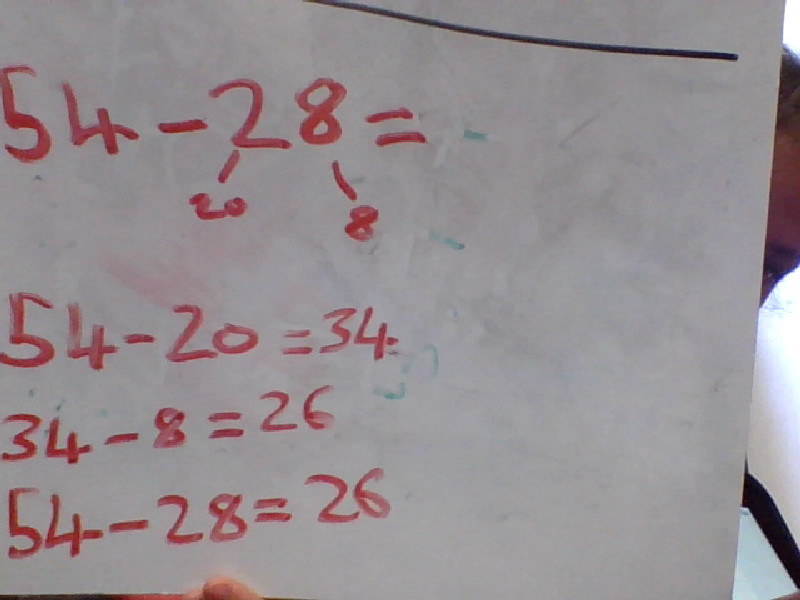 54-28=
20 8
54-20=34
34-8=26
54-28=26